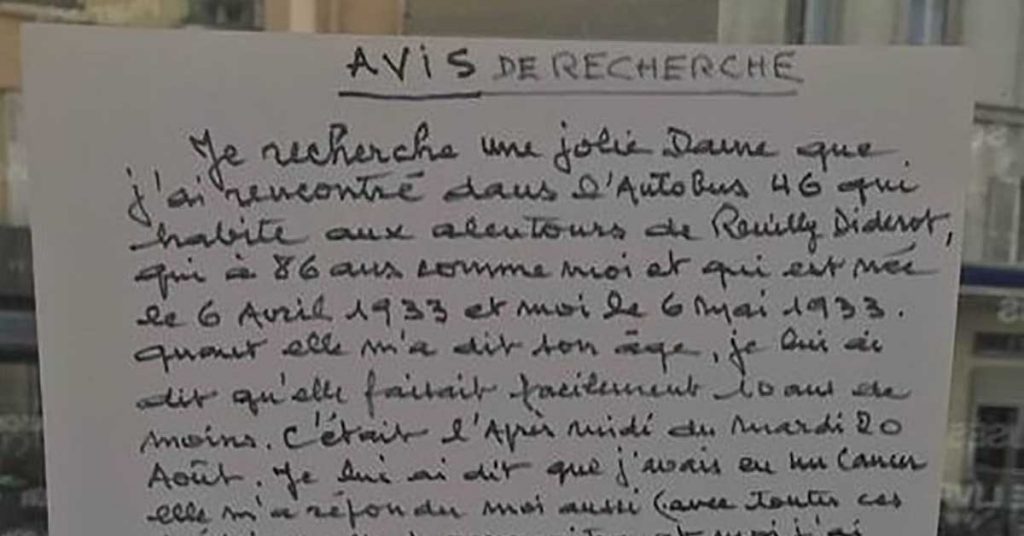 AVIS DE RECHERCHE
Je recherche une jolie Dame que
j'ai rencontré dans l'Autobus 46 qui
habite aux alentours de Reuilly Diderot,
qui à 86 ans comme moi et qui est née
le 6 Avril 1933 et moi le 6 mai 1933.
quant elle m'a dit son âge, je lui ai
dit qu'elle faisait facilement 10 ans de
moins. C'était l'Après midi du mardi 20
Août. Je lui ai dit que j'avais eu un Cancer
elle m'a répondu moi aussi (avec toutes ces
et moi j'ai